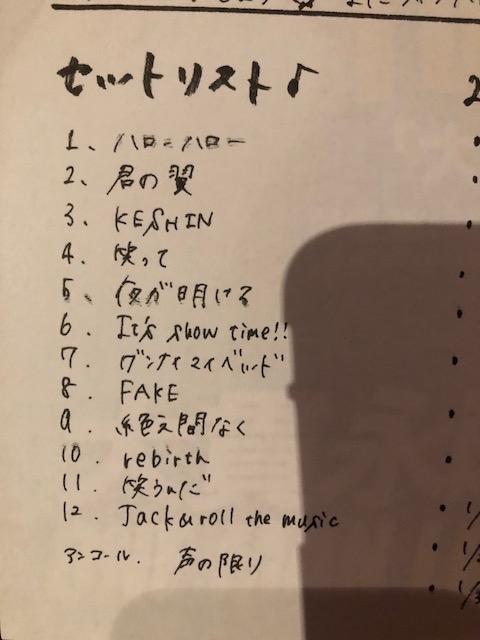 セットリスト♪
1、ハローハロー
2、君の翼
3、KESHIN
4、笑って
5、夜が明ける
6、It's show time!!
7、グンナイマイベッド
8、FAKE
9、絶え間なく
10、rebirth
11、笑うんだ
12、Jack&roll the music
アンコール、声の限り